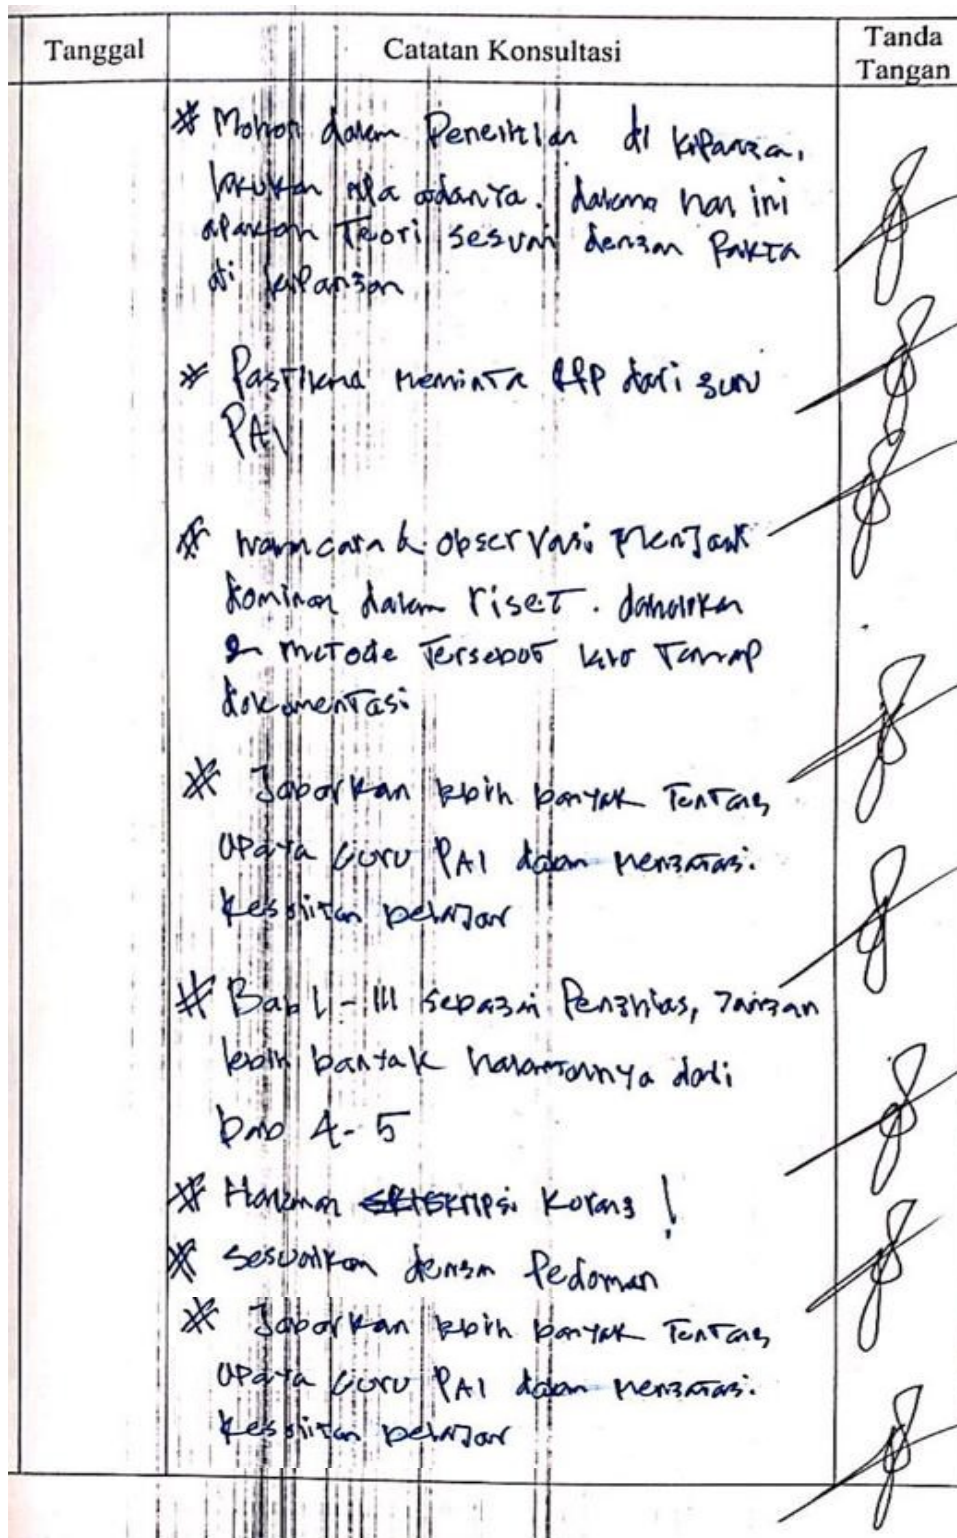 Tanggal
Catatan Konsultasi
Tanda
Tangan
# Mohon dalam Penelitian di lapangan,
lakukan apa adanya. dalam hal ini
apakah Teori sesuai dengan Fakta
di lapangan
# Pastikan meminta RPP dari guru
PAI
# wawancara & observasi menjadi
dominan dalam riset. dahulukan
2 metode Tersebut
dokumentasi
# Jabarkan lebih banyak Tentang
upaya Guru PAI dalam mengatasi
kesulitan belajar
# Bab I - III sebagai Penghias, Jangan
lebih banyak halamannya dari
bab 4-5
# Halaman skripsi kurang !
# sesuaikan dengan Pedoman
# Jabarkan lebih banyak Tentang
upaya Guru PAI dalam mengatasi
kesulitan belajar